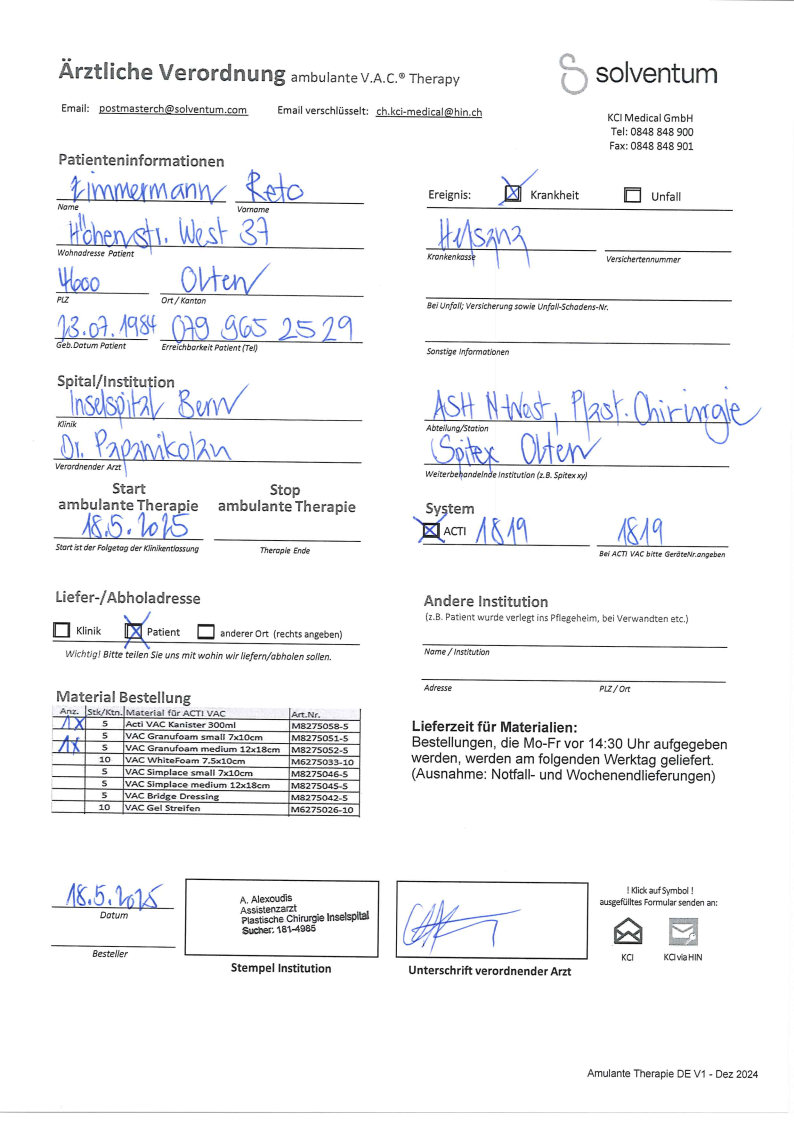 Ärztliche Verordnung ambulante V.A.C.® Therapy
solventum
Email: postmasterch@solventum.com Email verschlüsselt: ch.kci-medical@hin.ch
KCI Medical GmbH
Tel: 0848 848 900
Fax: 0848 848 901
Patienteninformationen
Zimmermann Reto
Name Vorname
Höhenstr. West 37
Wohnadresse Patient
4600 Olten
PLZ Ort / Kanton
13.07.1984 079 965 25 29
Geb.Datum Patient Erreichbarkeit Patient (Tel)
Ereignis: Krankheit Unfall
Helsana
Krankenkasse Versichertennummer
Bei Unfall; Versicherung sowie Unfall-Schadens-Nr.
Sonstige Informationen
Spital/Institution
Inselspital Bern
Klinik
Dr. Papanikolau
Verordnender Arzt
ASH N-West, Plast. Chirurgie
Abteilung/Station
Spitex Olten
Weiterbehandelnde Institution (z.B. Spitex xy)
Start Stop
ambulante Therapie ambulante Therapie
18.5.2025
Start ist der Folgetag der Klinikentlassung Therapie Ende
System
ACTI 1819 1819
Bei ACTI VAC bitte GeräteNr.angeben
Liefer-/Abholadresse
Klinik Patient anderer Ort (rechts angeben)
Wichtig! Bitte teilen Sie uns mit wohin wir liefern/abholen sollen.
Andere Institution
(z.B. Patient wurde verlegt ins Pflegeheim, bei Verwandten etc.)
Name / Institution
Adresse PLZ / Ort
Material Bestellung
Anz. Stk/Ktn. Material für ACTI VAC Art.Nr.
1x 5 Acti VAC Kanister 300ml M8275058-5
5 VAC Granufoam small 7x10cm M8275051-5
1x 5 VAC Granufoam medium 12x18cm M8275052-5
10 VAC WhiteFoam 7.5x10cm M6275033-10
5 VAC Simplace small 7x10cm M8275046-5
5 VAC Simplace medium 12x18cm M8275045-5
5 VAC Bridge Dressing M8275042-5
10 VAC Gel Streifen M6275026-10
Lieferzeit für Materialien:
Bestellungen, die Mo-Fr vor 14:30 Uhr aufgegeben
werden, werden am folgenden Werktag geliefert.
(Ausnahme: Notfall- und Wochenendlieferungen)
18.5.2025
Datum
Besteller
A. Alexoudis
Assistenzarzt
Plastische Chirurgie Inselspital
Sucher: 181-4985
Stempel Institution
Unterschrift verordnender Arzt
! Klick auf Symbol !
ausgefülltes Formular senden an:
KCI KCI via HIN
Amulante Therapie DE V1 - Dez 2024